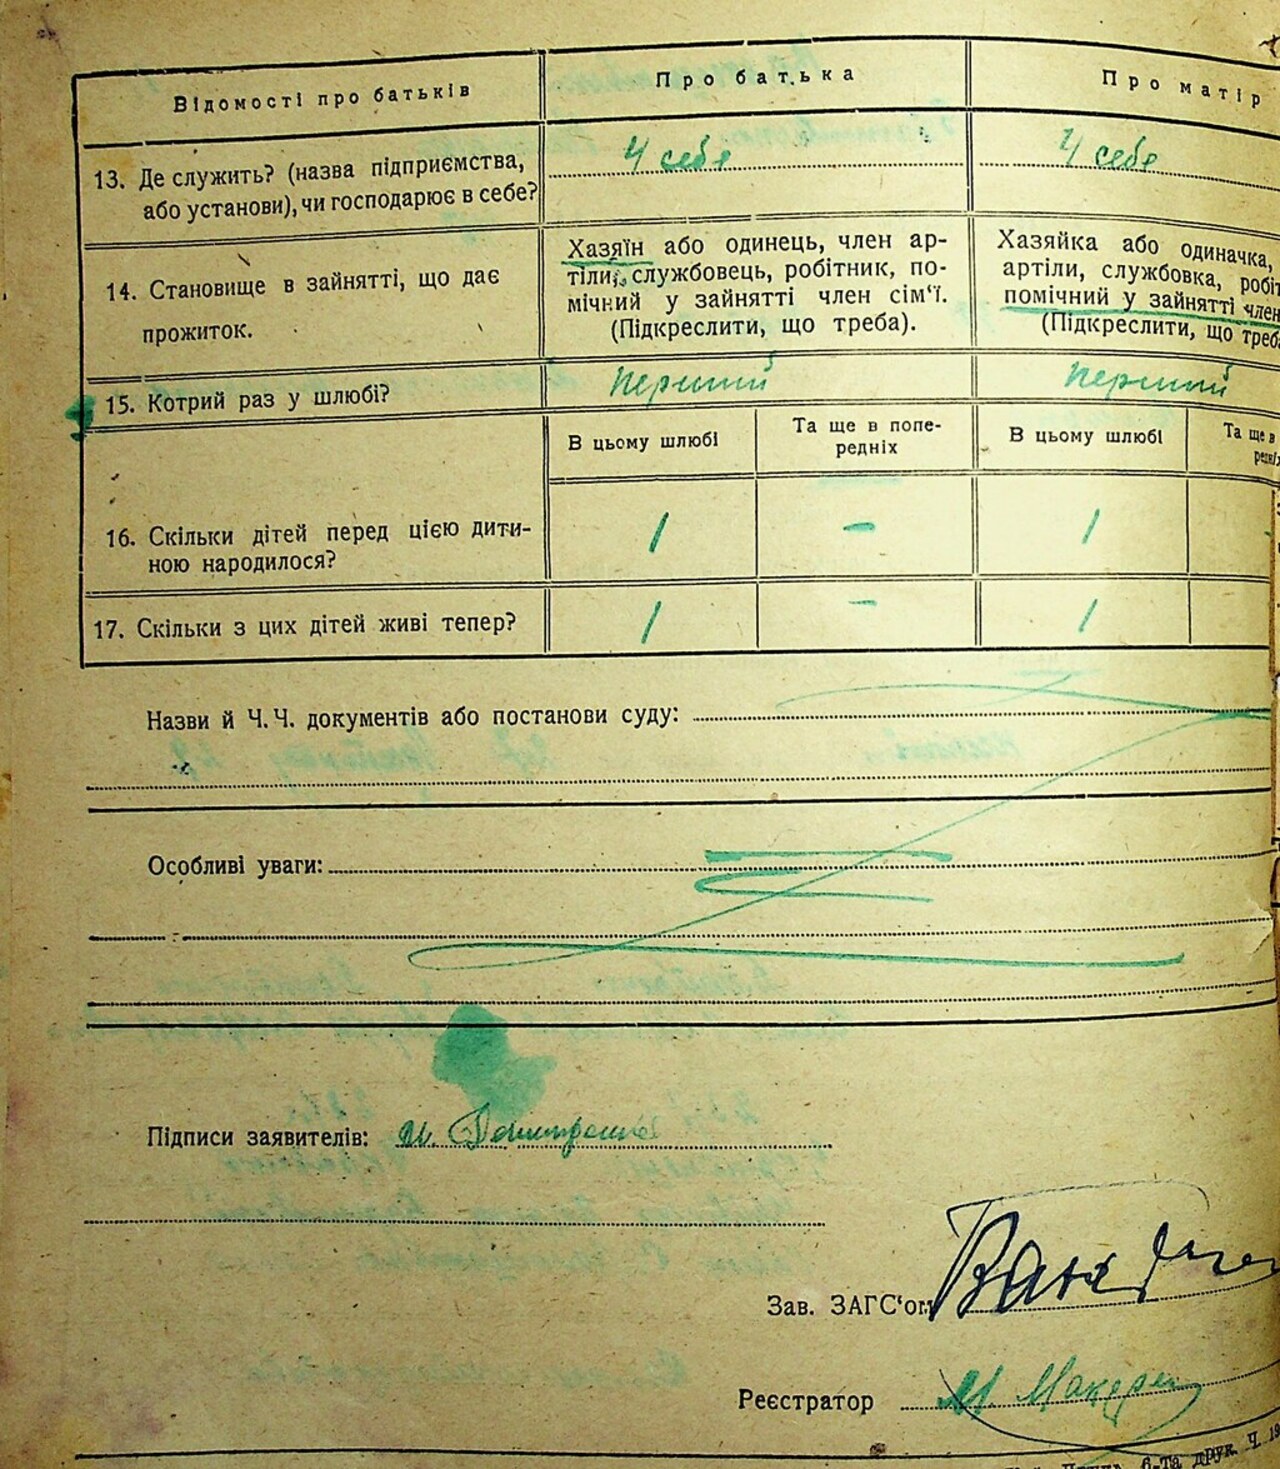 Відомості про батьків
Про батька
Про матір
13. Де служить? (назва підприємства,
або установи), чи господарює в себе?
У себе
У себе
14. Становище в зайнятті, що дає
прожиток.
Хазяїн або одинець, член ар-
тіли, службовець, робітник, по-
мічний у зайнятті член сім'ї.
(Підкреслити, що треба).
Хазяйка або одиначка,
артіли, службовка, робіт
помічний у зайнятті член
(Підкреслити, що треба
15. Котрий раз у шлюбі?
перший
перший
В цьому шлюбі
Та ще в попе-
редніх
В цьому шлюбі
Та ще в
16. Скільки дітей перед цією дити-
ною народилося?
1
-
1
17. Скільки з цих дітей живі тепер?
1
-
1
Назви й Ч.Ч. документів або постанови суду:
Особливі уваги:
Підписи заявителів:
Зав. ЗАГС'ом
Реєстратор М.
6-та друк. Ч.